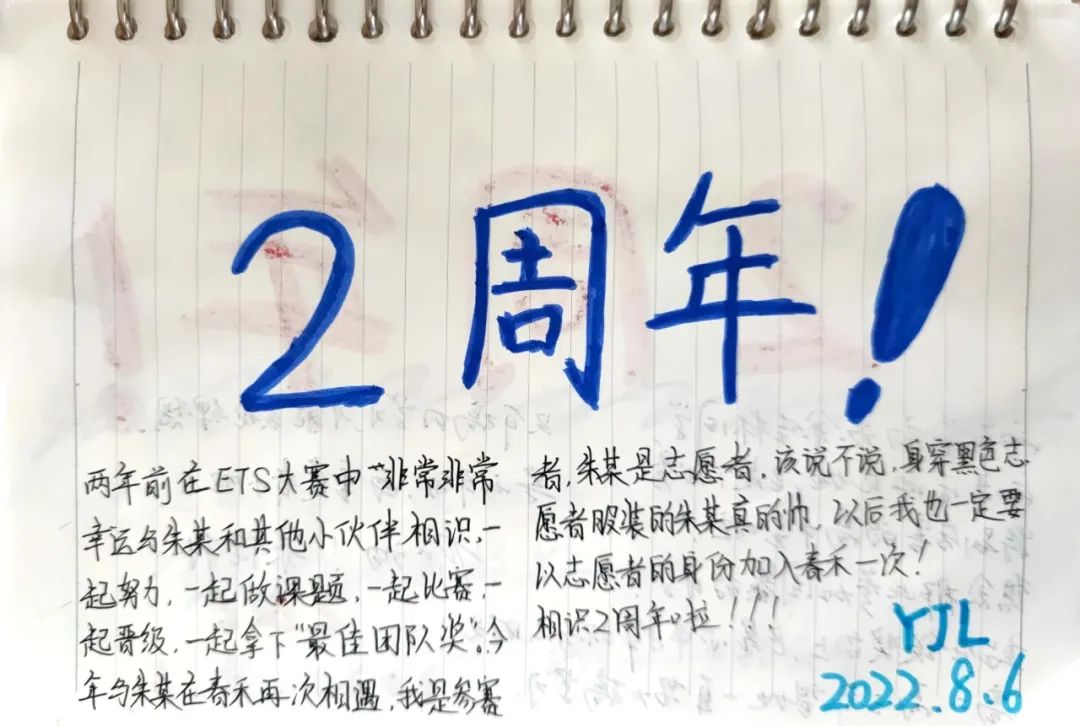 2周年!
两年前在ETS大赛中"非常非常
幸运与朱某和其他小伙伴相识,一
起努力,一起做课题,一起比赛,一
起晋级,一起拿下"最佳团队奖"。今
年与朱某在春禾再次相遇,我是参赛
者,朱某是志愿者,该说不说,身穿黑色志
愿者服装的朱某真的帅,以后我也一定要
以志愿者的身份加入春禾一次!
相识2周年啦!!!
YJL
2022.8.6